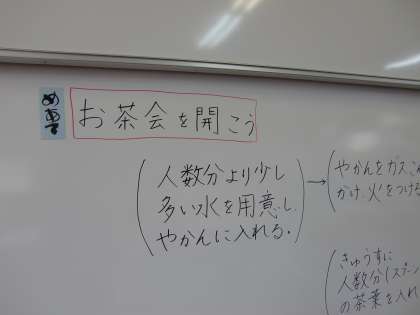 めあて
お茶会を開こう
人数分より少し
多い水を用意し、
やかんに入れる。
→
やかんをガスこ
かけ、火をつける
きゅうすに
人数分(スプーン
の茶葉を入れ